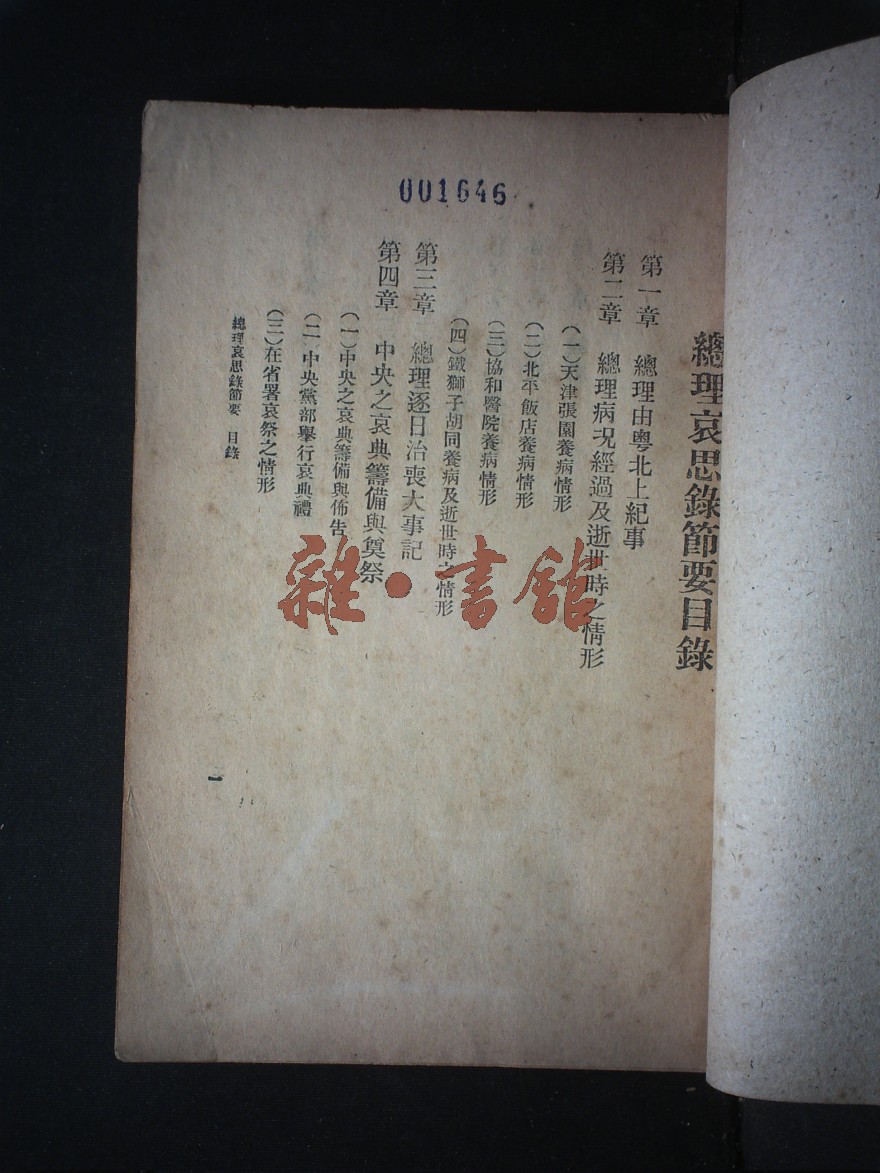 001646
總理哀思錄節要目錄
第一章 總理由粵北上紀事
第二章 總理病況經過及逝世時之情形
(一)天津張園養病情形
(二)北平飯店養病情形
(三)協和醫院養病情形
(四)鐵獅子胡同養病及逝世時之情形
第三章 總理逐日治喪大事記
第四章 中央之哀典籌備與奠祭
(一)中央之哀典籌備與佈告
(二 中央黨部舉行哀典禮
(三)在省署哀祭之情形
總理哀思錄節要 目錄
一
雜·書館